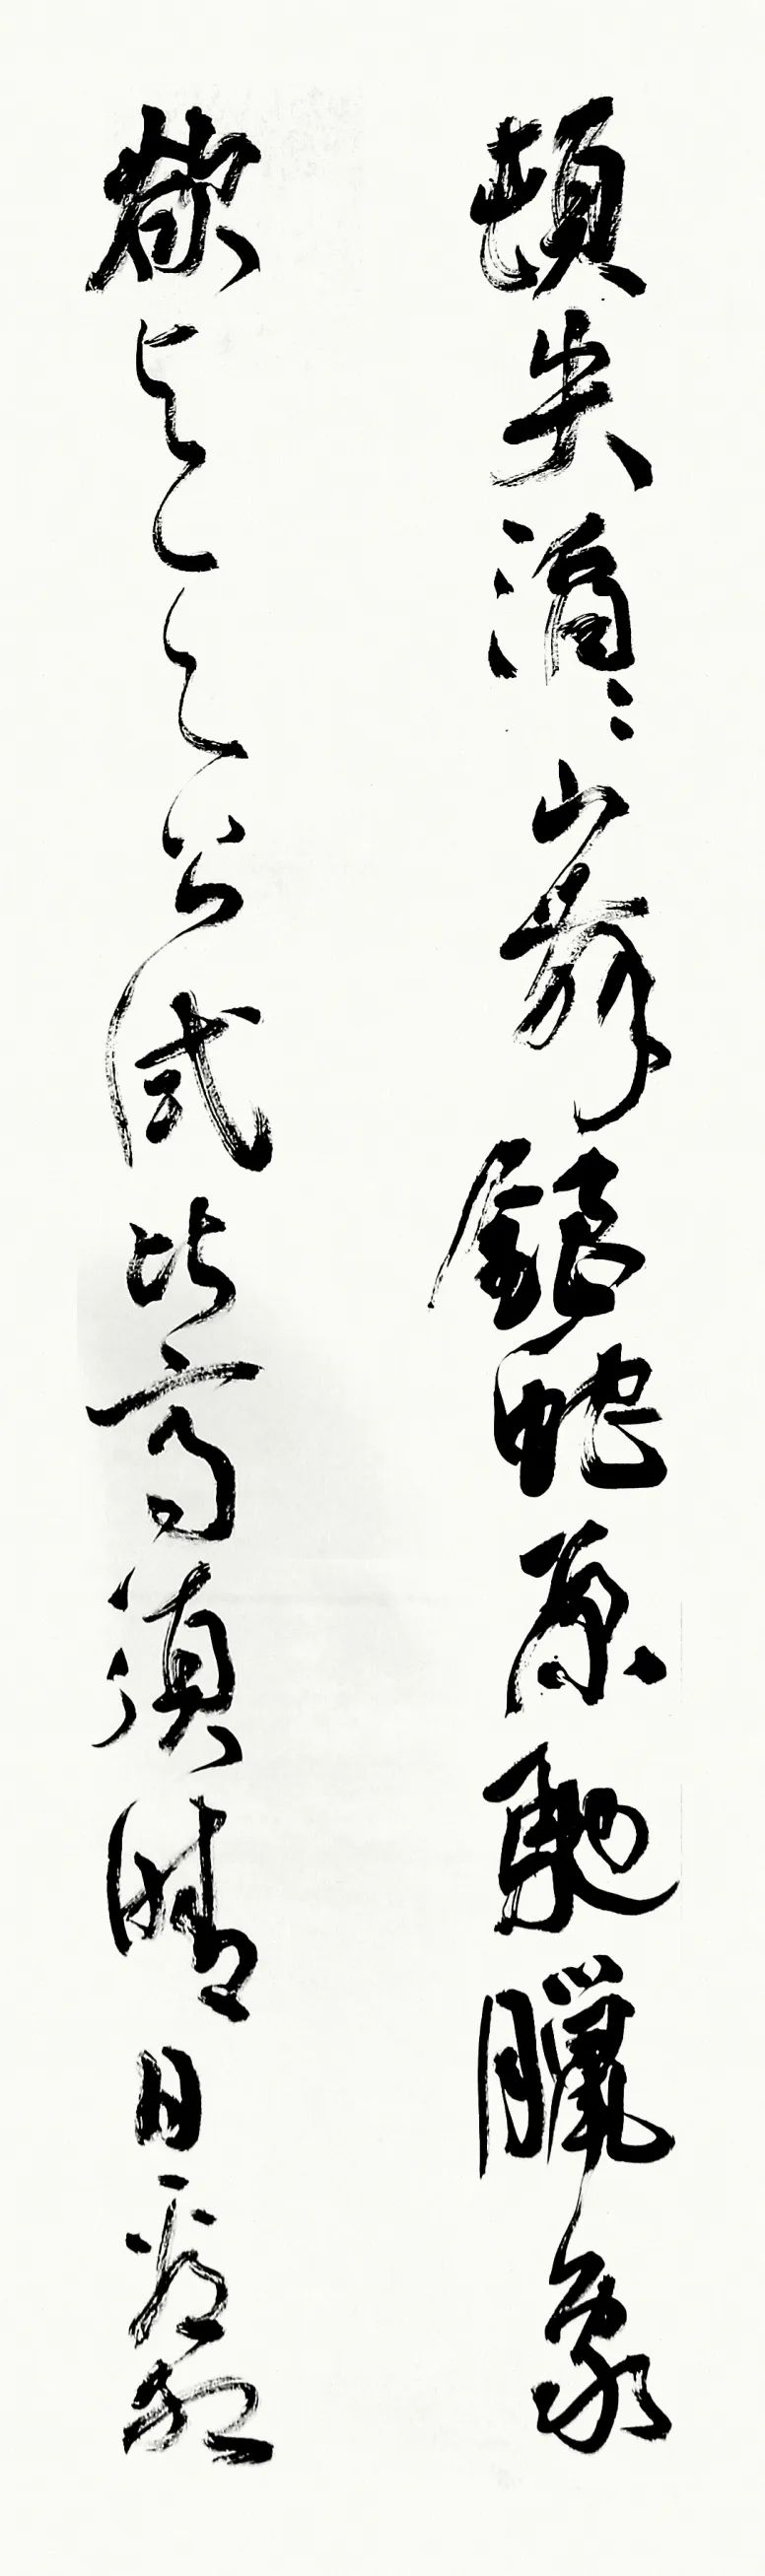 頓失滔〻山舞銀蛇原馳臘象
欲与天公試比高須晴日看紅